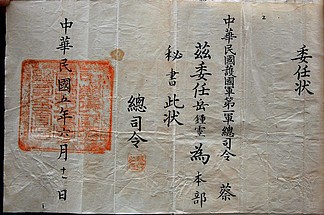 委任状
中華民國護國軍第一軍總司令 蔡
茲委任岳鍾靈為本部
秘書此状
總司令
中華民國五年六月十二日